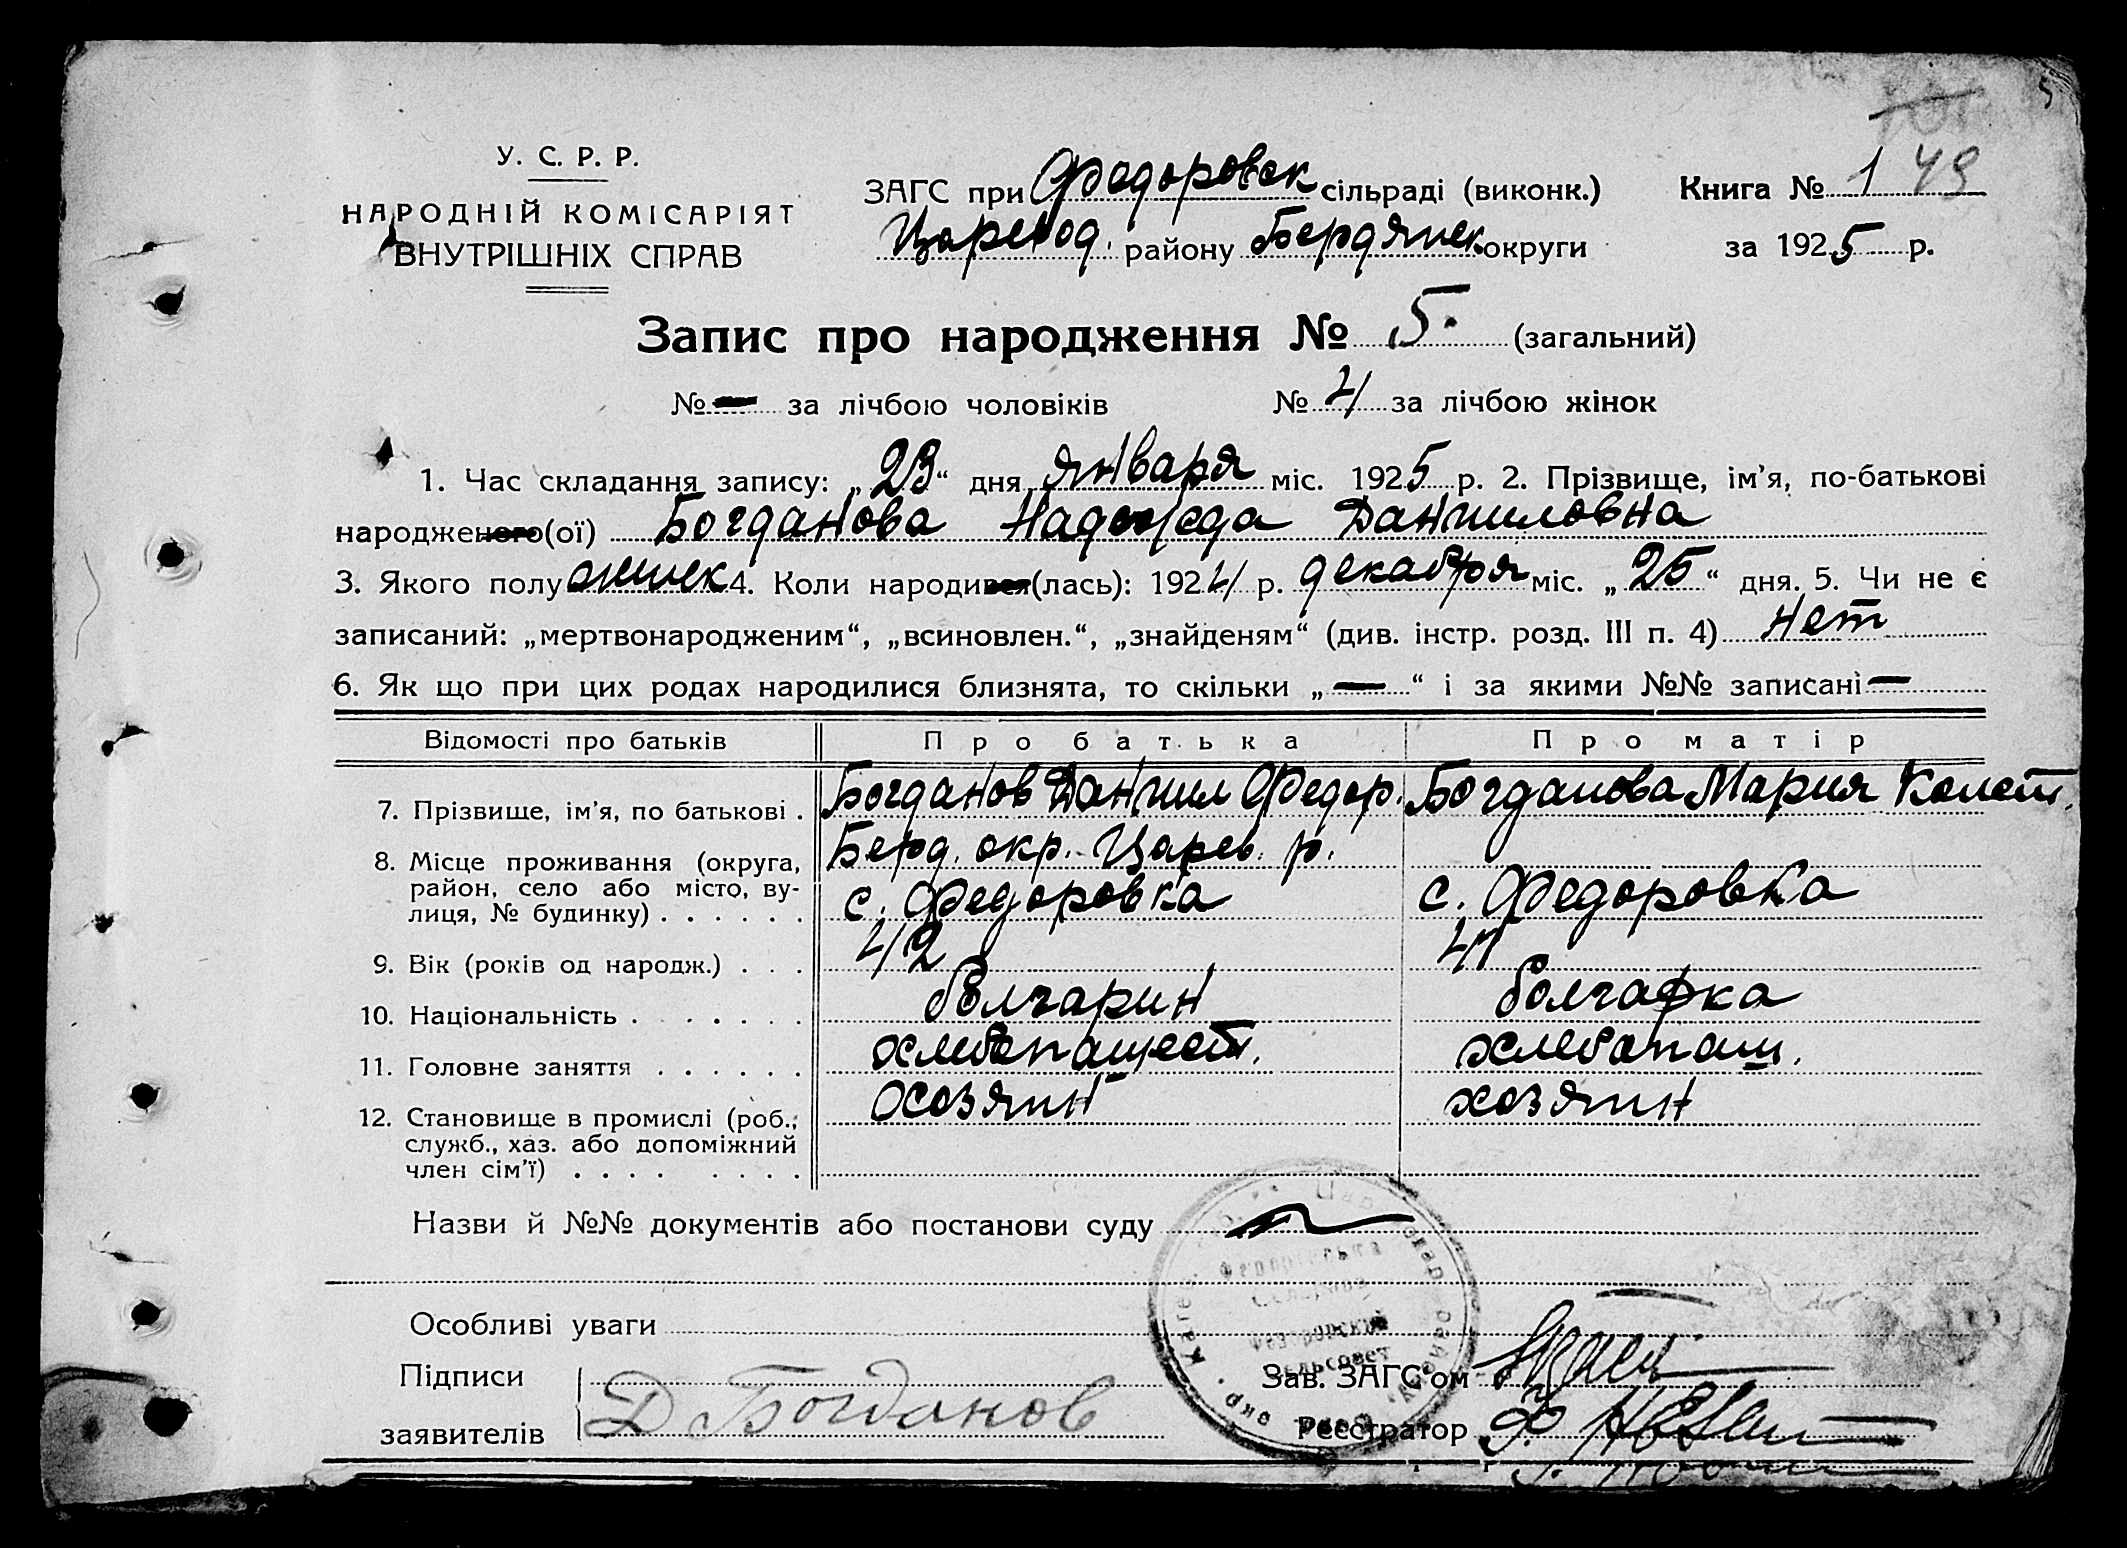 5
У. С. Р. Р.
НАРОДНІЙ КОМІСАРІЯТ
ВНУТРІШНІХ СПРАВ
ЗАГС при Федоровск сільраді (виконк.) Книга № 1 49
Царевод. району Бердянск округи за 1925 р.
Запис про народження № 5. (загальний)
№ — за лічбою чоловіків № 4 за лічбою жінок
1. Час складання запису: „23“ дня января міс. 1925 р. 2. Прізвище, ім’я, по-батькові
народженого(ої) Богданова Надежда Данииловна
3. Якого полу женск 4. Коли народився(лась): 1924 р. декабря міс. „25“ дня. 5. Чи не є
записаний: „мертвонародженим“, „всиновлен.“, „знайденям“ (див. інстр. розд. III п. 4) Нет
6. Як що при цих родах народилися близнята, то скільки „—“ і за якими №№ записані —
Відомості про батьків Про батька Про матір
7. Прізвище, ім’я, по батькові . Богданов Даниил Федор. Богданова Мария
8. Місце проживання (округа, Берд. окр. Царев. р.
район, село або місто, ву-
лиця, № будинку) . . . . . . с. Федоровка с. Федоровка
9. Вік (років од народж.) . . . 42 41
10. Національність . . . . . . . болгарин болгарка
11. Головне заняття . . . . . . хлебопашест. хлебопаш.
12. Становище в промислі (роб., хозяин хозяин
служб., хаз. або допоміжний
член сім’ї) . . . . . . . .
Назви й №№ документів або постанови суду
Особливі уваги
Підписи Зав. ЗАГС’ом
заявителів Д Богданов Реєстратор
Федоровский
сельсовет